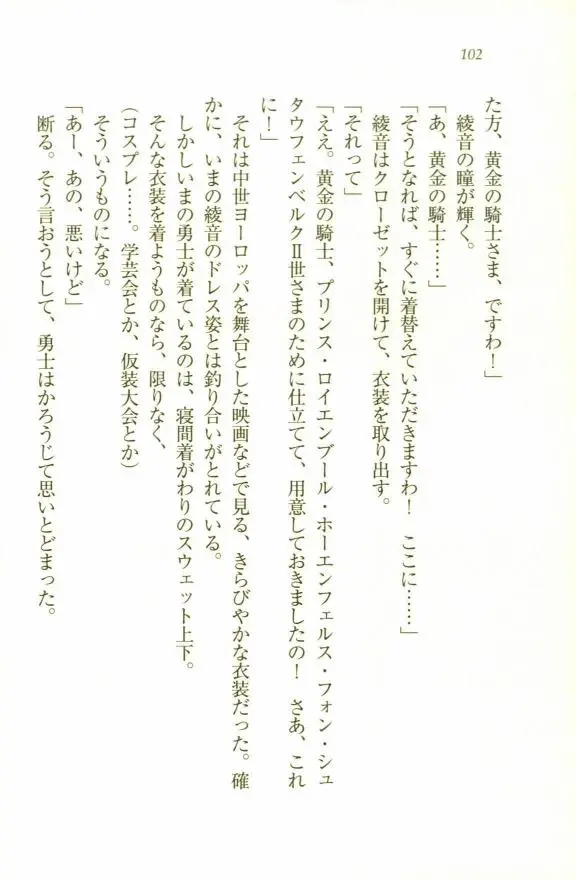 102
た方、黄金の騎士さま、ですわ！」
綾音の瞳が輝く。
「あ、黄金の騎士……」
「そうとなれば、すぐに着替えていただきますわ！　ここに……」
綾音はクローゼットを開けて、衣装を取り出す。
「それって」
「ええ。黄金の騎士、プリンス・ロイエンブール・ホーエンフェルス・フォン・シュ
タウフェンベルクⅡ世さまのために仕立てて、用意しておきましたの！　さあ、これ
に！」
それは中世ヨーロッパを舞台とした映画などで見る、きらびやかな衣装だった。確
かに、いまの綾音のドレス姿とは釣り合いがとれている。
しかしいまの勇士が着ているのは、寝間着がわりのスウェット上下。
そんな衣装を着ようものなら、限りなく、
（コスプレ……。学芸会とか、仮装大会とか）
そういうものになる。
「あー、あの、悪いけど」
断る。そう言おうとして、勇士はかろうじて思いとどまった。